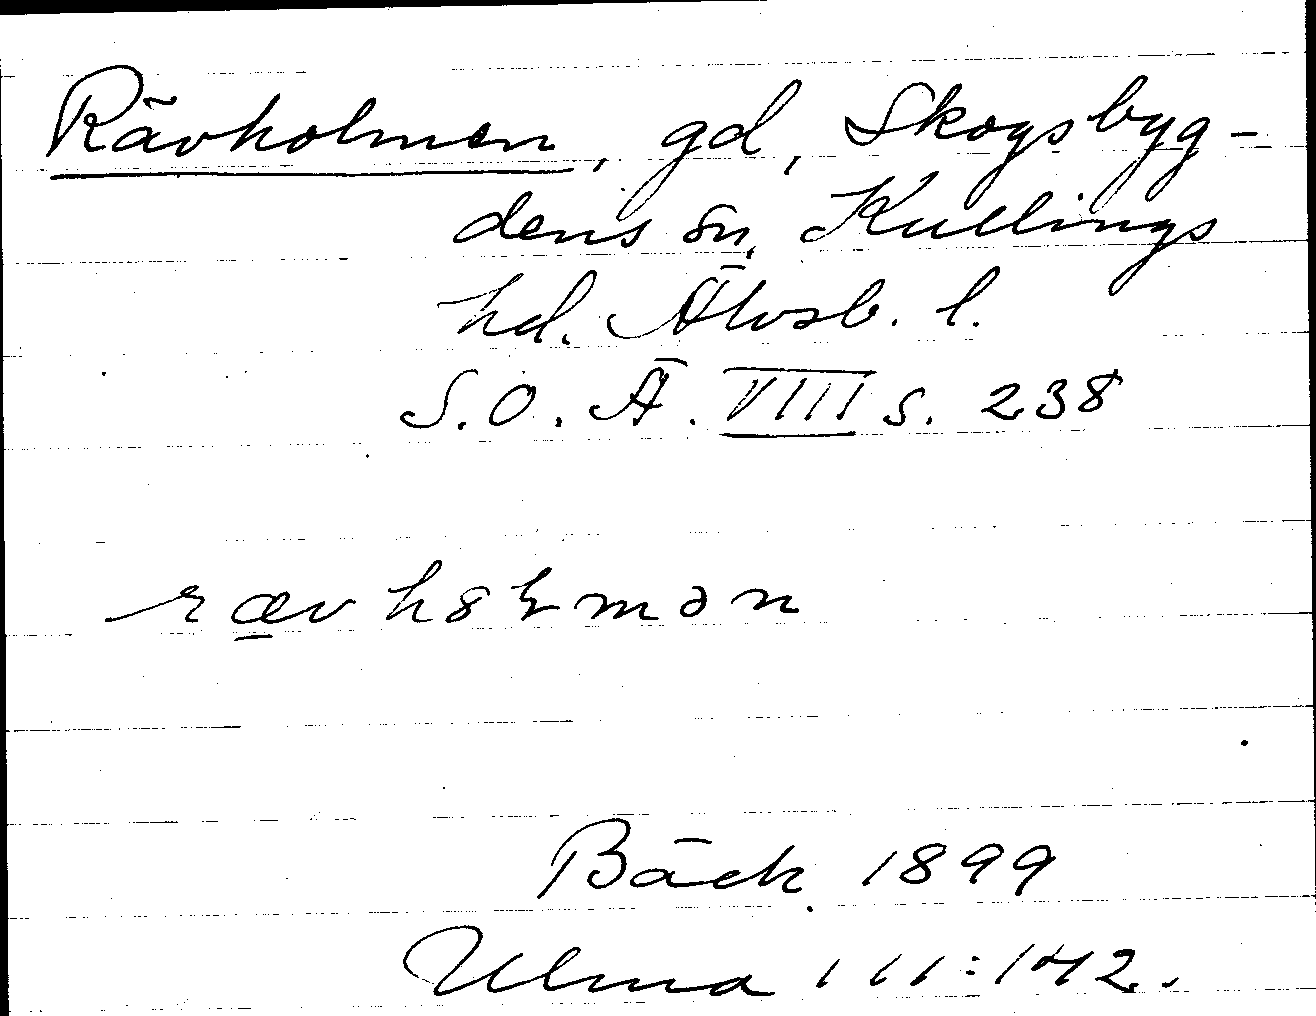 Rävholmen, gd, Skogsbyg-
dens sn, Kullings
hd. Älvsb. l.
S.O.Ä. VIII s. 238
rævh8ɫmən
Bäck 1899
Ulma 111:142.